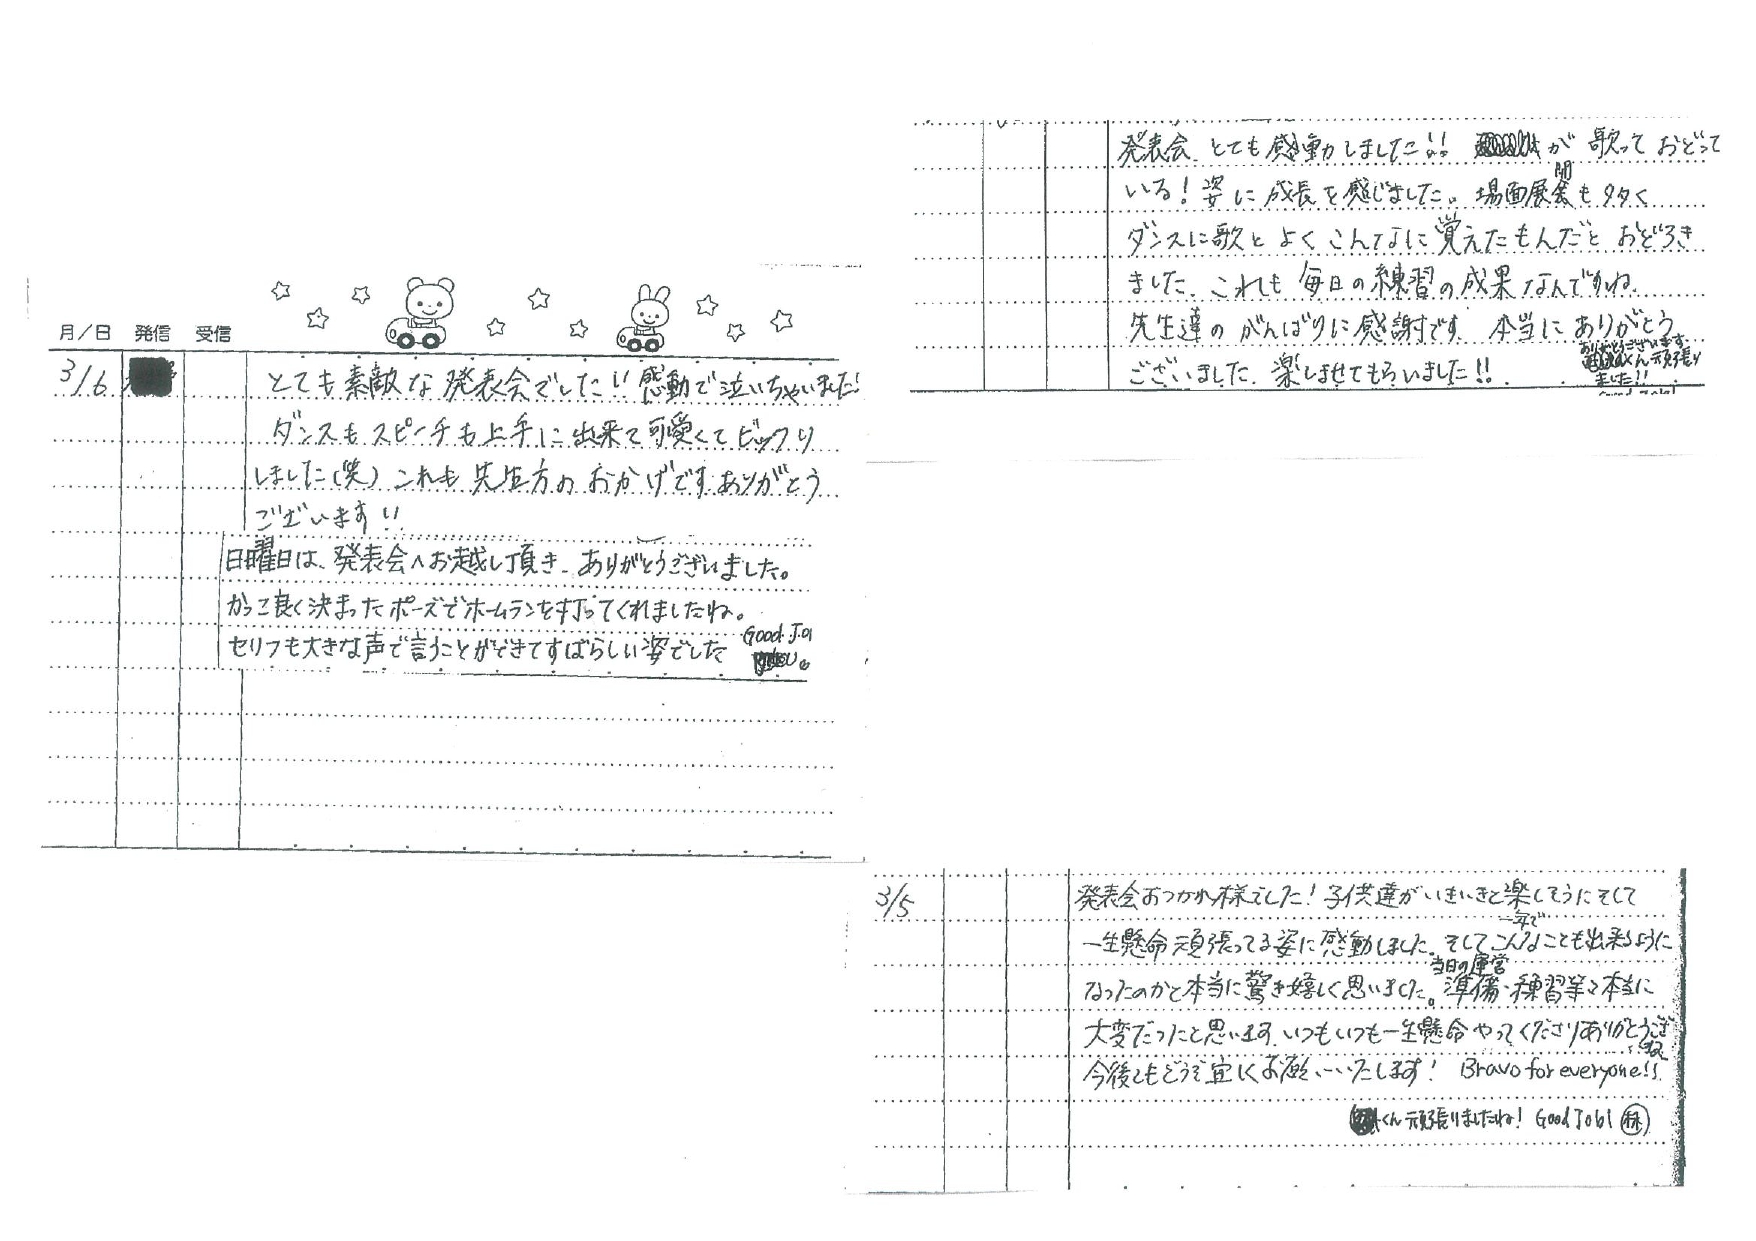 月／日 発信 受信
3/6
とても素敵な発表会でした!! 感動で泣いちゃいました!
ダンスもスピーチも上手に出来て可愛くてビックリ
しました(笑) これも先生方のおかげです。ありがとう
ございます!!
日曜日は、発表会へお越し頂き、ありがとうございました。
かっこ良く決まったポーズでホームランを打ってくれましたね。
セリフも大きな声で言うことができてすばらしい姿でした
Good
発表会 とても感動しました!! が 歌って おどって
いる! 姿に成長を感じました。場面展開も多く
ダンスに歌と よく こんなに覚えたもんだと おどろき
ました。これも 毎日の練習の成果なんですね。
先生達の がんばりに感謝です。本当に ありがとう
ございました。楽しませてもらいました!!
ありがとうございます。
くん頑張り
ました!!
Good Job!
3/5
発表会おつかれ様でした! 子供達がいきいきと楽しそうにそして
一生懸命頑張ってる姿に感動しました。そして一年でこんなことも出来るように
なったのかと本当に驚き嬉しく思いました。当日の運営 準備・練習等々本当に
大変だったと思います。いつもいつも一生懸命やってくださりありがとうござ
今後ともどうぞ宜しくお願いいたします! Bravo for everyone!!
くん頑張りましたね! Good Job! 林